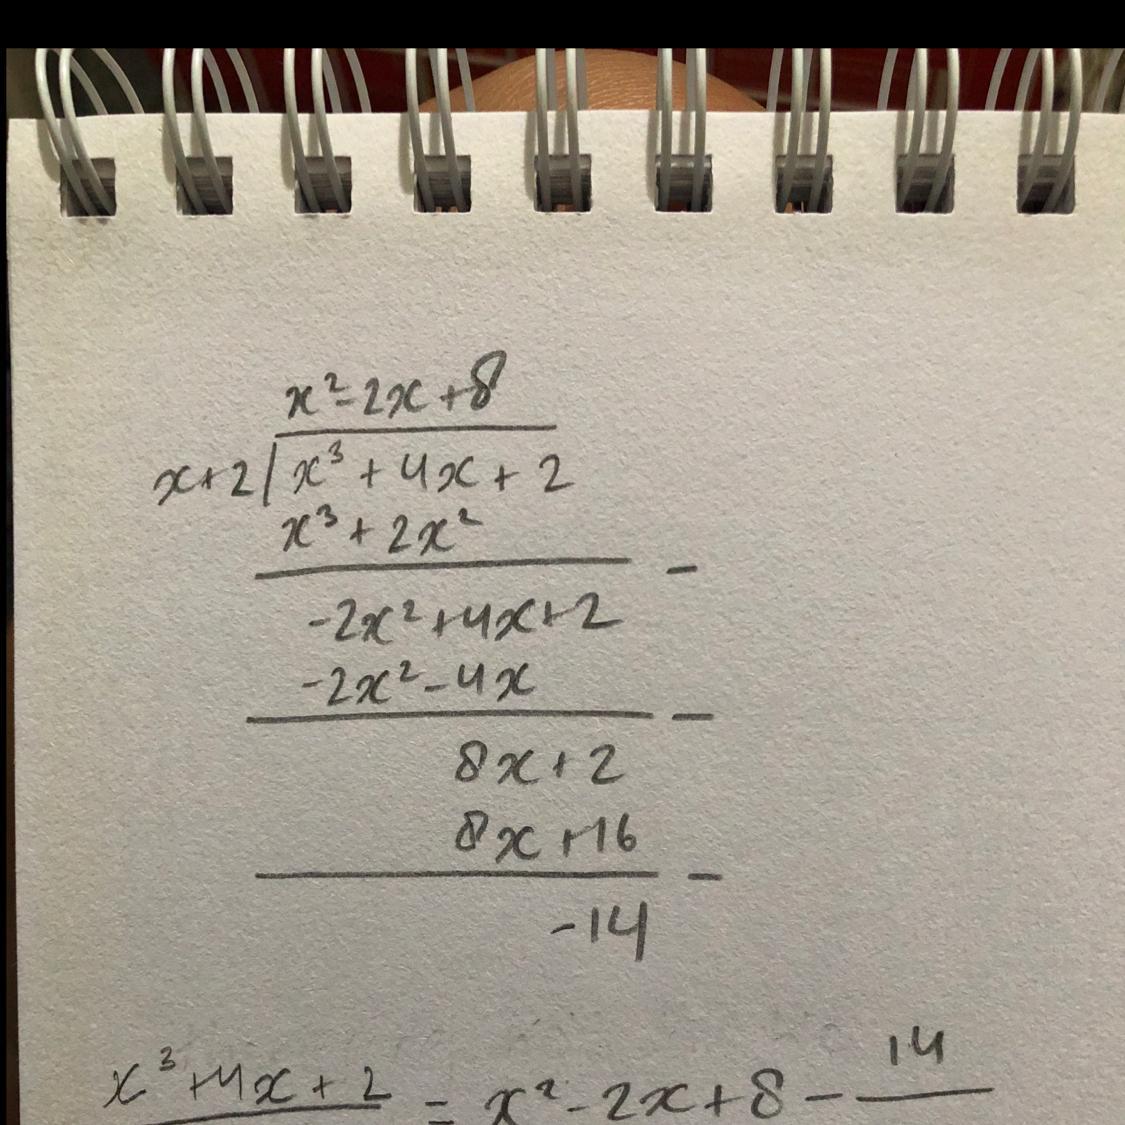 x²-2x+8
x+2 | x³+4x+2
x³+2x²
-
-2x²+4x+2
-2x²-4x
-
8x+2
8x+16
-
-14
14
x³+4x+2 = x²-2x+8 -